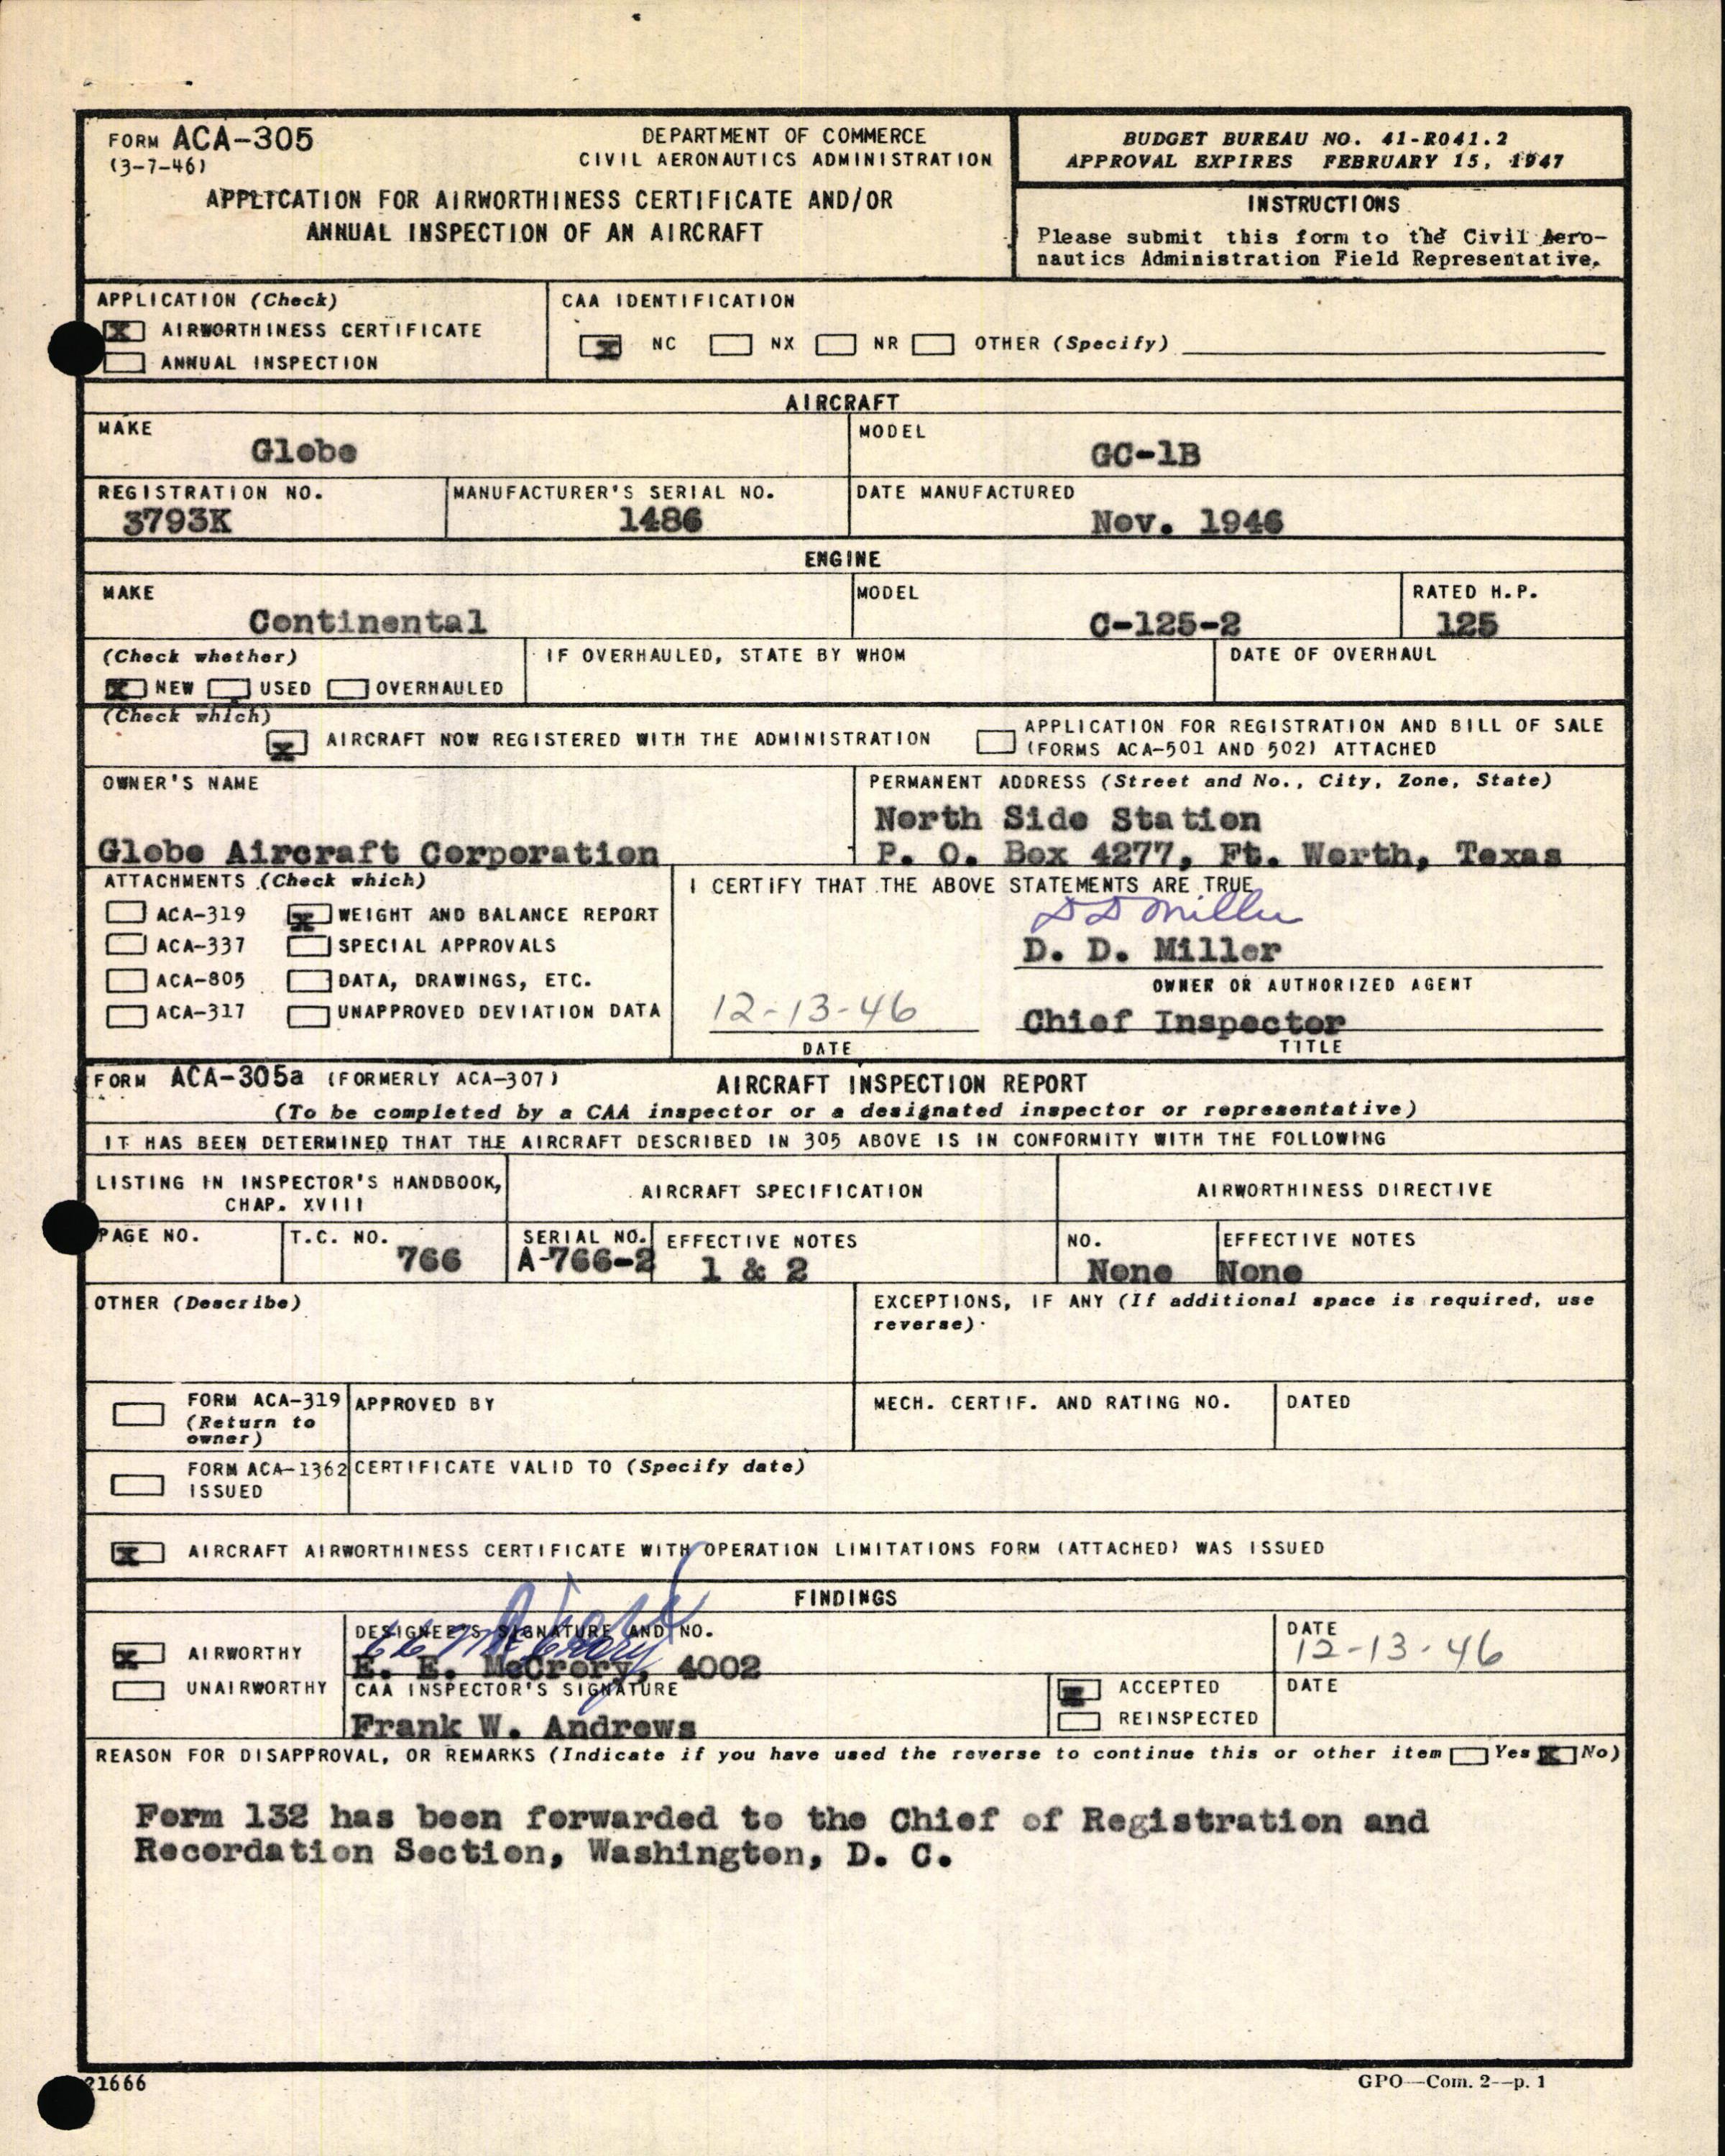 FORM ACA-305
(3-7-46)
DEPARTMENT OF COMMERCE
CIVIL AERONAUTICS ADMINISTRATION
APPLICATION FOR AIRWORTHINESS CERTIFICATE AND/OR
ANNUAL INSPECTION OF AN AIRCRAFT
BUDGET BUREAU NO. 41-R041.2
APPROVAL EXPIRES FEBRUARY 15, 1947
INSTRUCTIONS
Please submit this form to the Civil Aero-
nautics Administration Field Representative.
APPLICATION (Check)
X AIRWORTHINESS CERTIFICATE
ANNUAL INSPECTION
CAA IDENTIFICATION
X NC NX NR OTHER (Specify)
AIRCRAFT
MAKE
Globe
MODEL
GC-1B
REGISTRATION NO.
3793K
MANUFACTURER'S SERIAL NO.
1486
DATE MANUFACTURED
Nov. 1946
ENGINE
MAKE
Continental
MODEL
C-125-2
RATED H.P.
125
(Check whether)
X NEW USED OVERHAULED
IF OVERHAULED, STATE BY WHOM
DATE OF OVERHAUL
(Check which)
X AIRCRAFT NOW REGISTERED WITH THE ADMINISTRATION
APPLICATION FOR REGISTRATION AND BILL OF SALE
(FORMS ACA-501 AND 502) ATTACHED
OWNER'S NAME
Globe Aircraft Corporation
PERMANENT ADDRESS (Street and No., City, Zone, State)
North Side Station
P. O. Box 4277, Ft. Worth, Texas
ATTACHMENTS (Check which)
ACA-319 X WEIGHT AND BALANCE REPORT
ACA-337 SPECIAL APPROVALS
ACA-805 DATA, DRAWINGS, ETC.
ACA-317 UNAPPROVED DEVIATION DATA
I CERTIFY THAT THE ABOVE STATEMENTS ARE TRUE
D D Miller
D. D. Miller
OWNER OR AUTHORIZED AGENT
12-13-46
Chief Inspector
DATE
TITLE
FORM ACA-305a (FORMERLY ACA-307)
AIRCRAFT INSPECTION REPORT
(To be completed by a CAA inspector or a designated inspector or representative)
IT HAS BEEN DETERMINED THAT THE AIRCRAFT DESCRIBED IN 305 ABOVE IS IN CONFORMITY WITH THE FOLLOWING
LISTING IN INSPECTOR'S HANDBOOK,
CHAP. XVIII
AIRCRAFT SPECIFICATION
AIRWORTHINESS DIRECTIVE
PAGE NO.
T.C. NO.
766
SERIAL NO.
A-766-2
EFFECTIVE NOTES
1 & 2
NO.
None
EFFECTIVE NOTES
None
OTHER (Describe)
EXCEPTIONS, IF ANY (If additional space is required, use
reverse).
FORM ACA-319
(Return to
owner)
APPROVED BY
MECH. CERTIF. AND RATING NO.
DATED
FORM ACA-1362
ISSUED
CERTIFICATE VALID TO (Specify date)
X AIRCRAFT AIRWORTHINESS CERTIFICATE WITH OPERATION LIMITATIONS FORM (ATTACHED) WAS ISSUED
FINDINGS
X AIRWORTHY
UNAIRWORTHY
DESIGNEE'S SIGNATURE AND NO.
E E McCrory
E. E. McCrory, 4002
DATE
12-13-46
CAA INSPECTOR'S SIGNATURE
Frank W. Andrews
X ACCEPTED
REINSPECTED
DATE
REASON FOR DISAPPROVAL, OR REMARKS (Indicate if you have used the reverse to continue this or other item Yes X No)
Form 132 has been forwarded to the Chief of Registration and
Recordation Section, Washington, D. C.
21666
GPO—Com. 2—p. 1